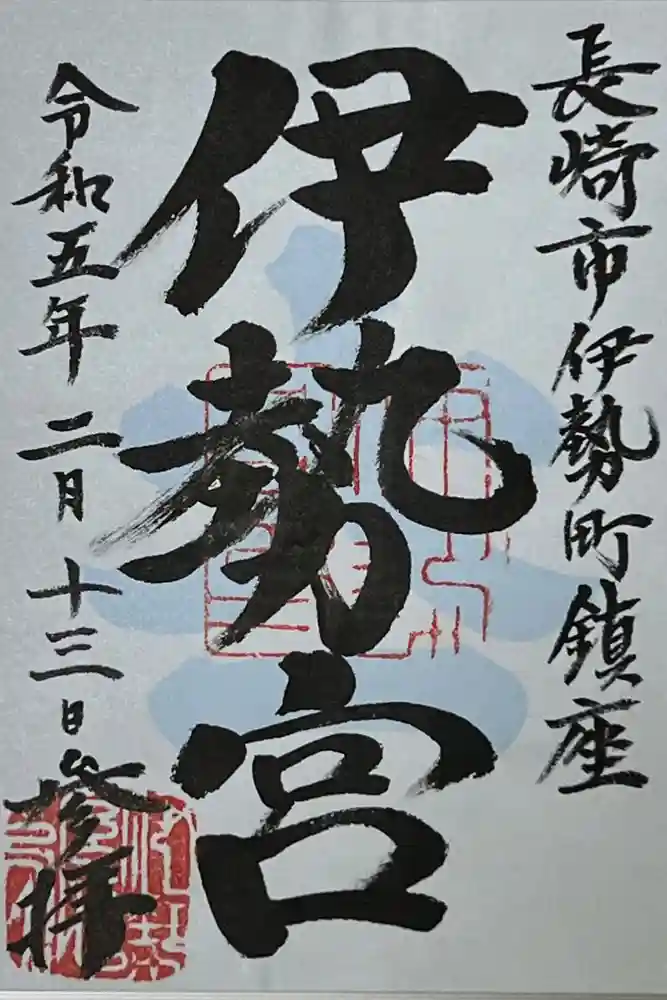 長崎市伊勢町鎮座
伊勢宮
令和五年二月十三日参拝